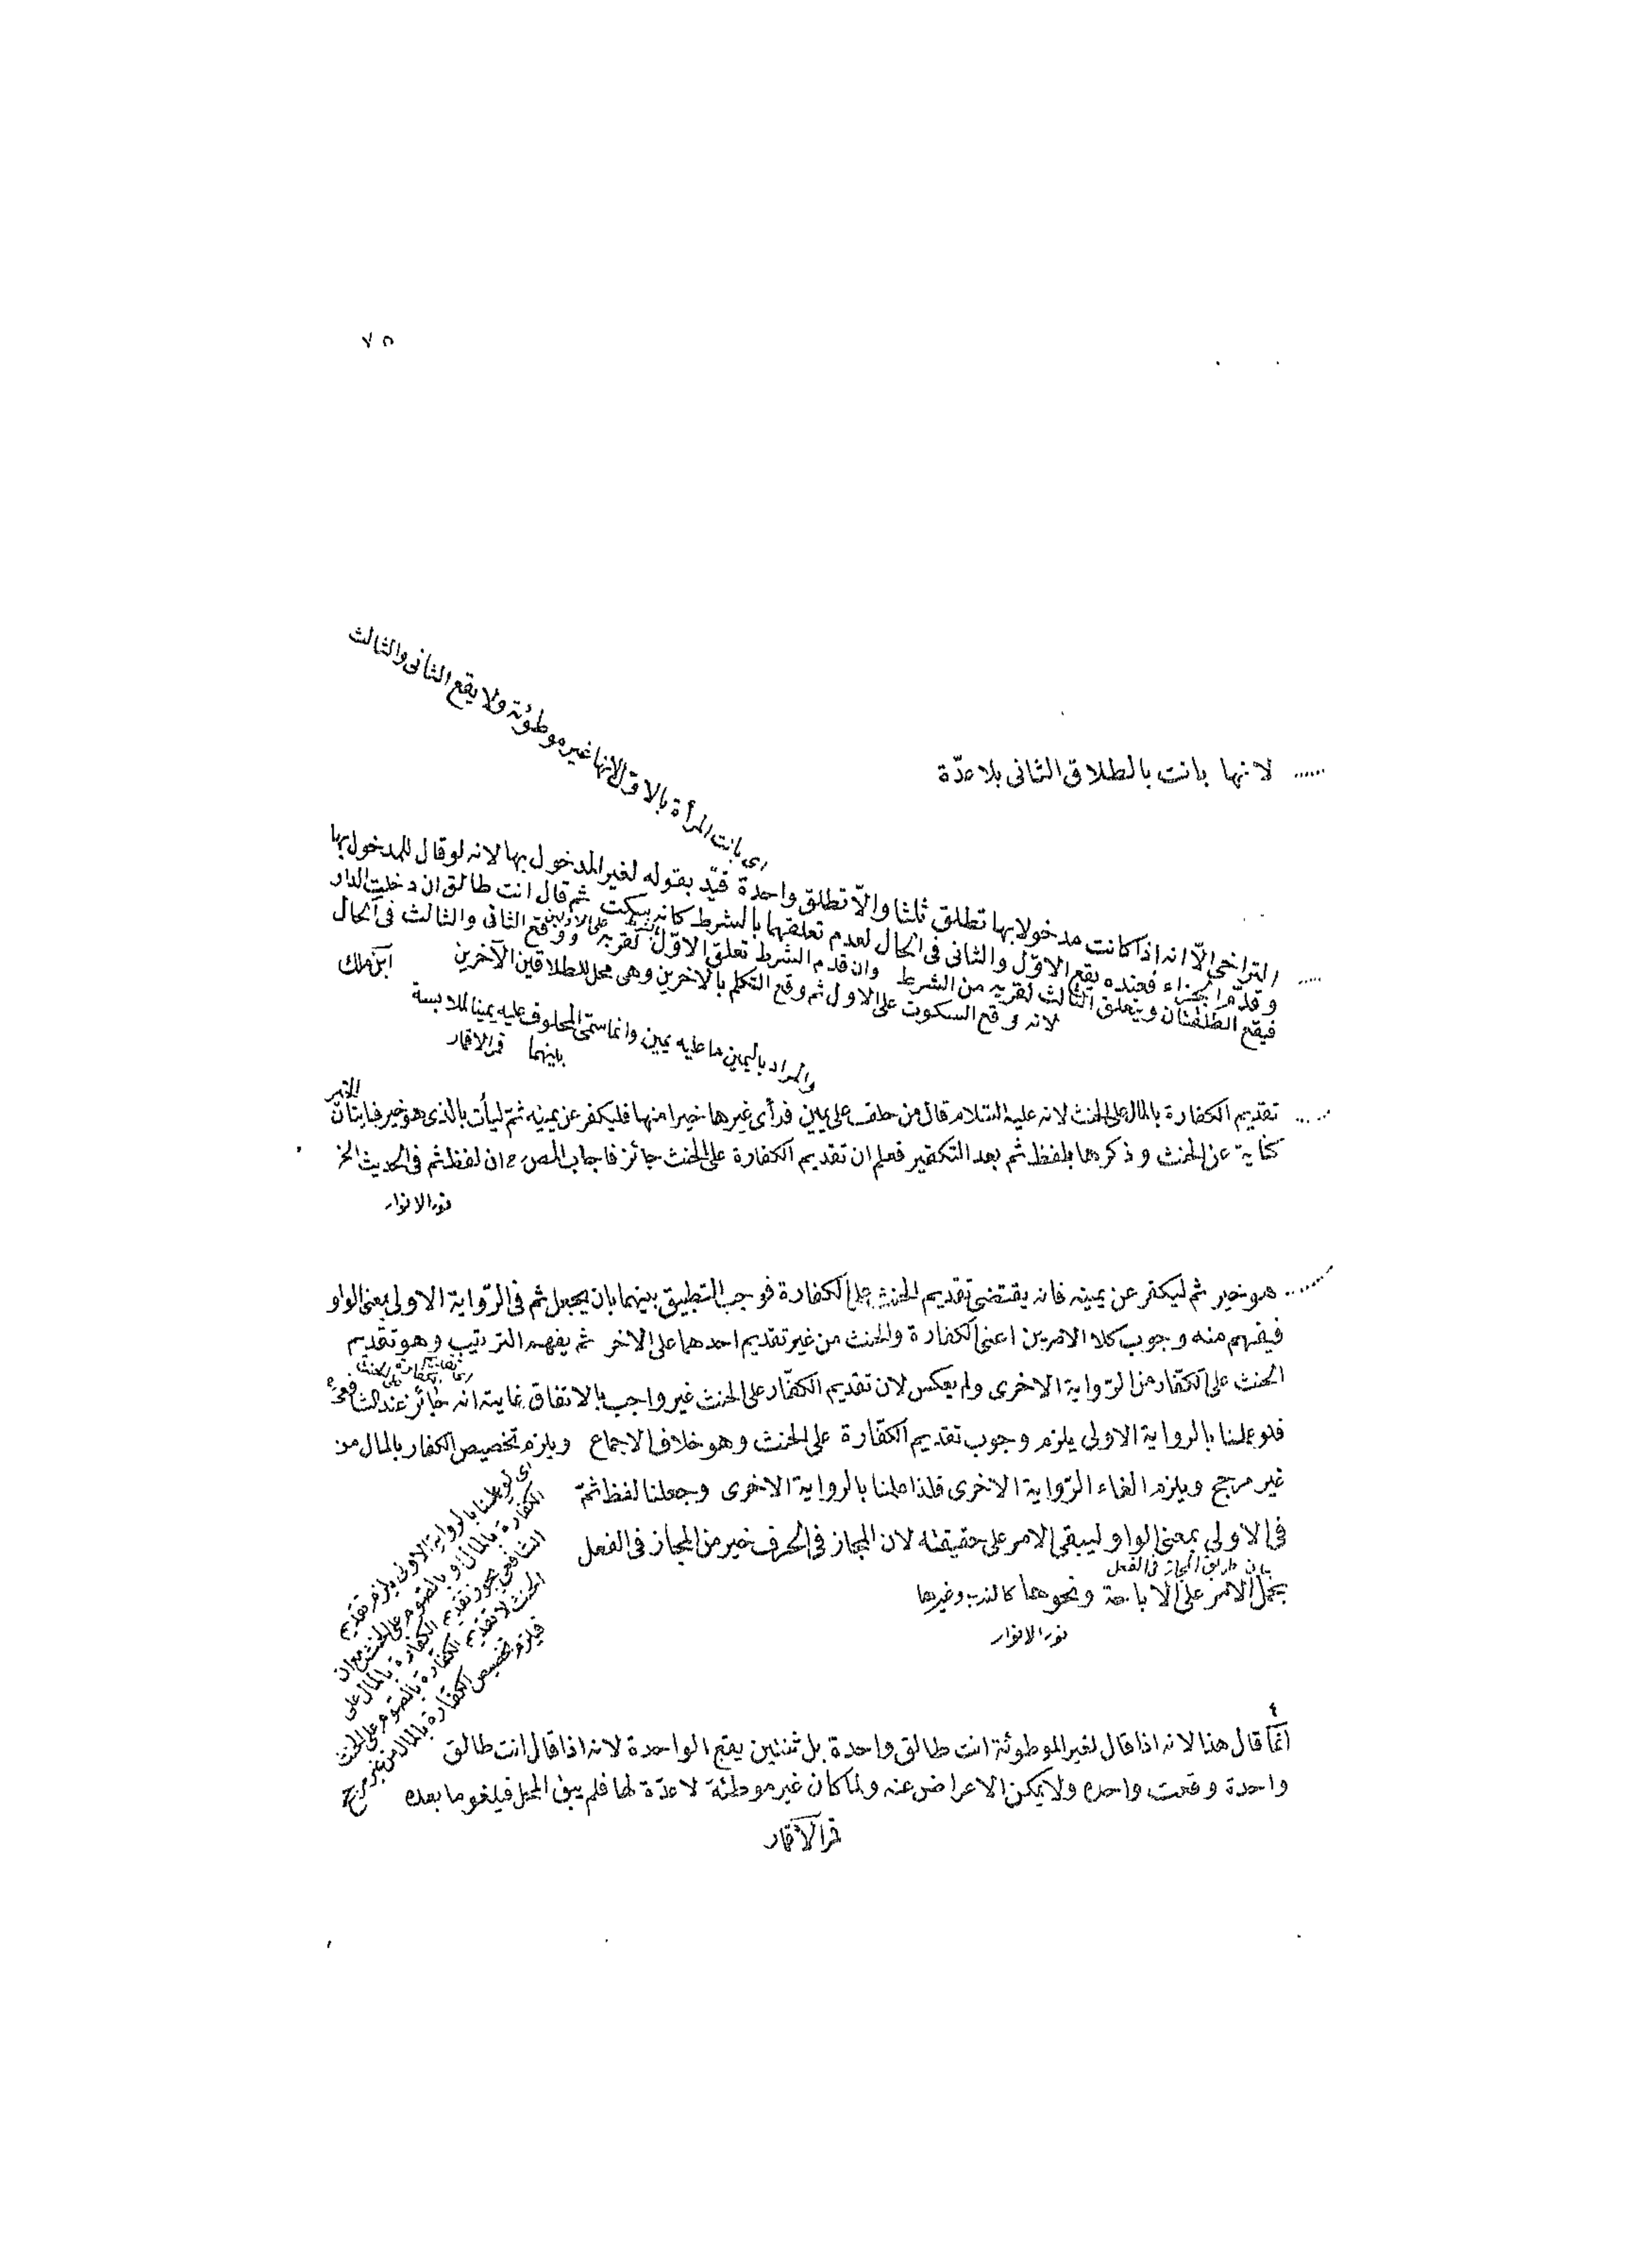 ٧٥
اى بانت المرأة بالاوّل لانها غير موطوئة ولا يقع الثانى والثالث
لانها بانت بالطلاق الثانى بلا عدّة
التراخى الّا انه اذا كانت مدخولا بها تطلق ثلثا والّا تطلق واحدة قيّد بقوله لغير المدخول بها لانه لو قال للمدخول بها
وقدّم الجزاء فعنده يقع الاوّل والثانى فى الحال لعدم تعلقهما بالشرط كانه سكت ثم قال انت طالق ان دخلت الدار
فيقع الطلقتان ويتعلق الثالث لقربه من الشرط وان قدم الشرط تعلق الاوّل لقربه ووقع الثانى والثالث فى الحال
لانه وقع السكوت على الاول ثم وقع التكلم بالآخرين وهى محل للطلاقين الآخرين ابن ملك
والمراد باليمين ما عليه يمين وانما سمّى المحلوف عليه يمينا لملابسة
بينهما قمر الاقمار
تقديم الكفارة بالمال على الحنث لانه عليه السّلام قال من حلف على يمين فرأى غيرها خيرا منها فليكفر عن يمينه ثمّ ليأت بالذى هو خير فاتيان
كناية عن الحنث وذكرها بلفظ ثم بعد التكفير فعلم ان تقديم الكفارة على الحنث جائز فاجاب المصن ح ان لفظ ثم فى الحديث الخ
نور الانوار
هو خير ثم ليكفر عن يمينه فانه يقتضى تقديم الحنث على الكفارة فوجب التطبيق بينهما بان يجعل ثم فى الرّواية الاولى بمعنى الواو
فيفهم منه وجوب كلا الامرين اعنى الكفارة والحنث من غير تقديم احدهما على الاخر ثم يفهم الترتيب وهو تقديم
الحنث على الكفّار من الرّواية الاخرى ولم يعكس لان تقديم الكفّار على الحنث غير واجب بالاتفاق غايته انه جائز عند الشافعى
فلو عملنا بالرواية الاولى يلزم وجوب تقديم الكفّارة على الحنث وهو خلاف الاجماع ويلزم تخصيص الكفار بالمال من
غير مرجح ويلزم الغاء الرّواية الاخرى فلذا عملنا بالرواية الاخرى وجعلنا لفظ ثمّ
فى الاولى بمعنى الواو ليبقى الامر على حقيقته لان المجاز فى الحرف خير من المجاز فى الفعل
بيان طريق المجاز فى الفعل
بحمل الامر على الاباحة ونحوهما كالندب وغيرها
نور الانوار
اى لو عملنا بالرواية الاولى يلزم تقديم
الكفارة بالمال او بالصوم على الحنث مع ان
الشافعى يجوز تقديم الكفارة بالمال على
الحنث لا تقديم الكفارة بالصوم على الحنث
فيلزم تخصيص الكفارة بالمال من غير مرجح
٤
انّما قال هذا لانه اذا قال لغير الموطوئة انت طالق واحدة بل ثنتين يقع الواحدة لانه اذا قال انت طالق
واحدة وقعت واحدة ولا يمكن الاعراض عنه ولما كان غير موطئة لا عدّة لها فلم يبق المحل فيلغو ما بعده
قمر الاقمار